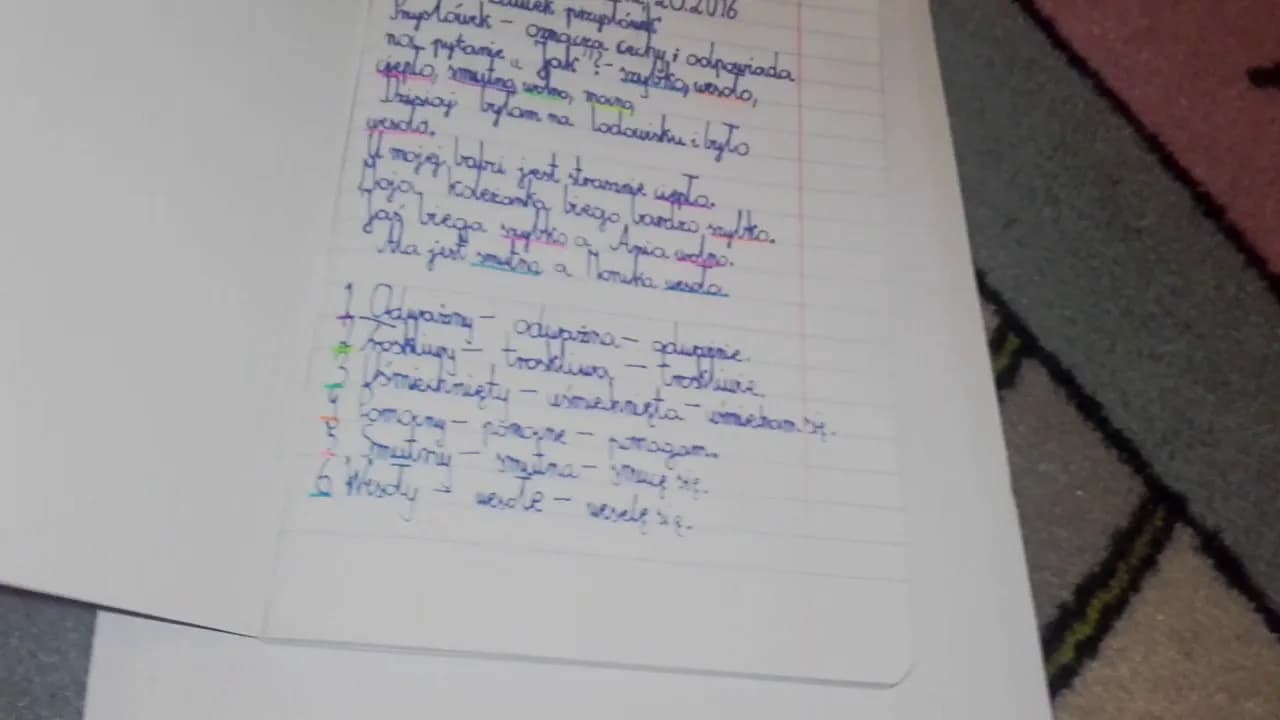 20.2016
przysłówek
Przysłówek - oznacza cechy i odpowiada
na pytanie „Jak"? - szybko, wesoło,
ciepło, smutno, wolno, mocno
Dzisiaj byłam na lodowisku i było
wesoło.
U mojej babci jest strasznie ciepło.
Moja koleżanka biega bardzo szybko.
Jaś biega szybko a Ania wolno.
Ala jest smutna a Monika wesoła
1 Odważny - odważna - odważnie.
2 Troskliwy - troskliwa - troskliwie.
3 Uśmiechnięty - uśmiechnięta - uśmiecham się.
4 Pomocny - pomocne - pomagam.
5 Smutny - smutna - smucę się.
6 Wesoły - wesołe - weselę się.